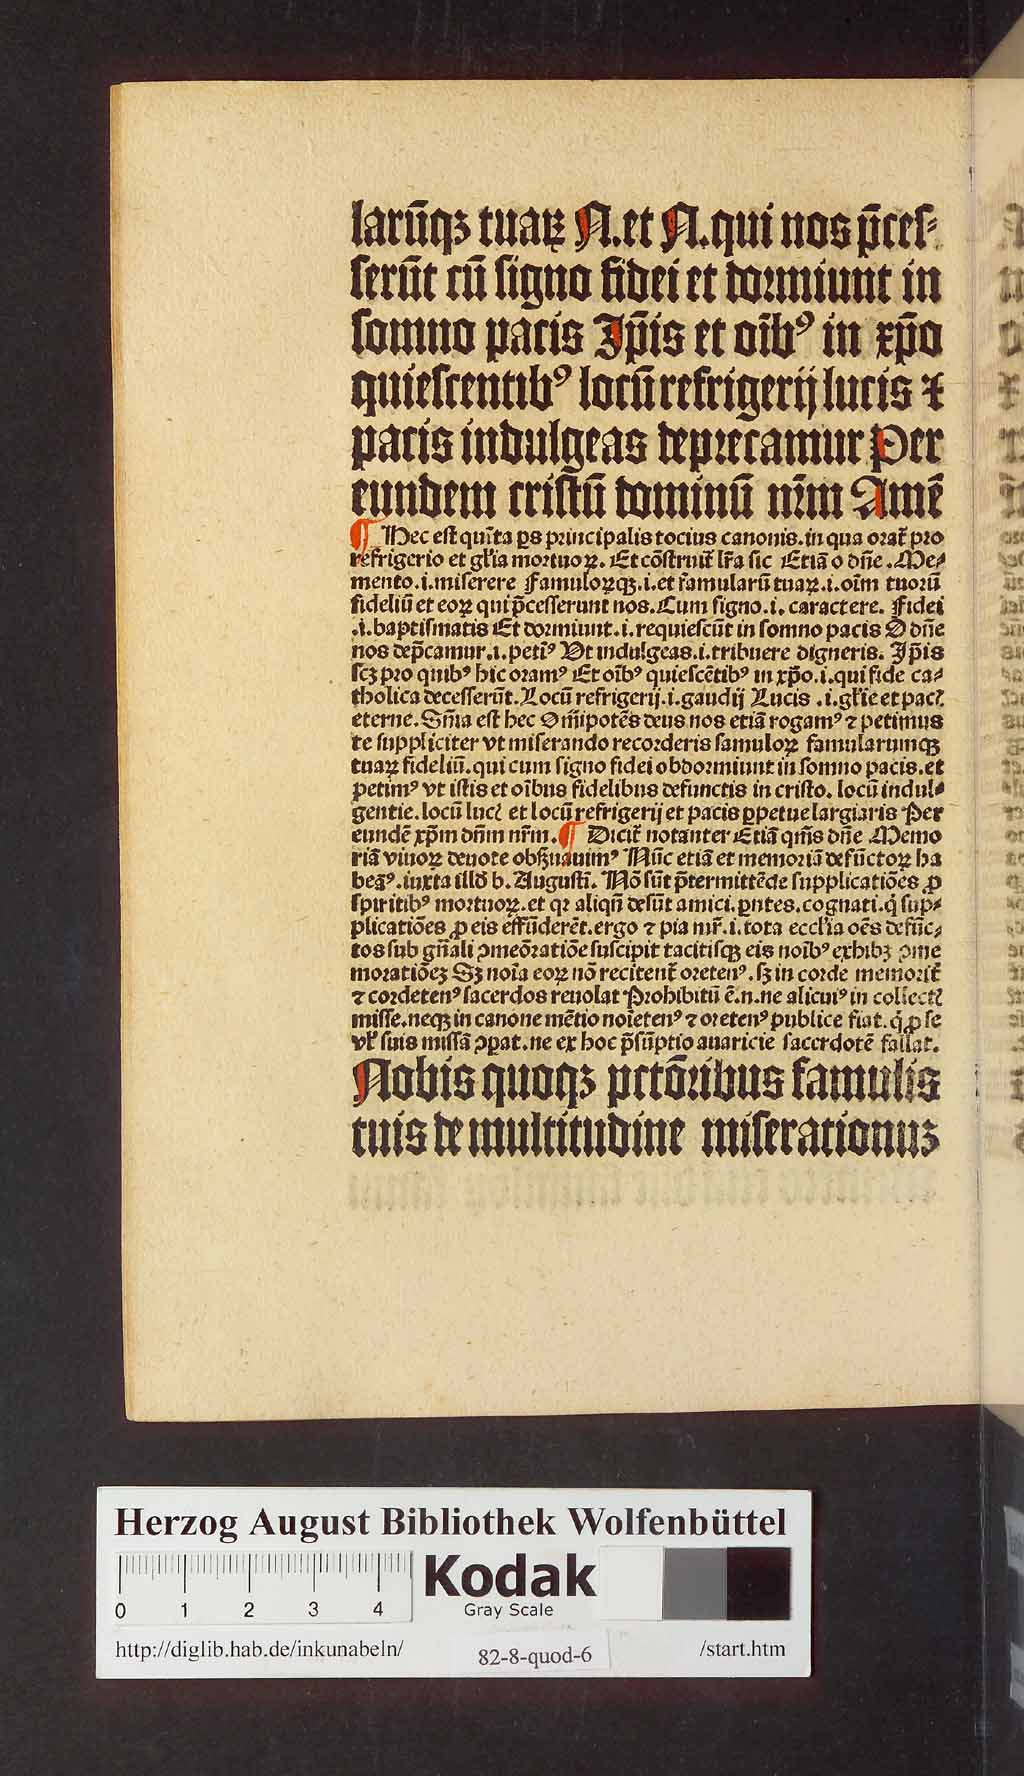 larūqꝫ tuaꝝ N.et N.qui nos p̄ceſ⸗
ſerūt cū ſigno fidei et dormiunt in
ſomno pacis Ip̄is et oīb⁹ in xp̄o
quieſcentib⁹ locū refrigerij lucis ⁊
pacis indulgeas deprecamur Per
eundem criſtū dominū nr̄m Amē
¶ Hec eſt quīta ꝑs principalis tocius canonis.in qua orat̄ pro
refrigerio et gl̄ia mortuoꝝ. Et cōſtruit̄ lr̄a ſic Etiā o dn̄e .Me⸗
mento.i.miſerere Famuloꝝqꝫ.i.et famularū tuaꝝ.i.oīm tuorū
fideliū et eoꝝ qui p̄ceſſerunt nos.Cum ſigno.i. caractere. Fidei
.i.baptiſmatis Et dormiunt.i.requieſcūt in ſomno pacis O dn̄e
nos dep̄camur.i.petim⁹ Vt indulgeas.i.tribuere digneris. Ip̄is
ſcꝫ pro quib⁹ hic oram⁹ Et oīb⁹ quieſcētib⁹ in xp̄o.i.qui fide ca⸗
tholica deceſſerūt.Locū refrigerij.i.gaudij Lucis .i.gl̄ie et pacꝭ
eterne.Sn̄ia eſt hec Om̄ipotēs deus nos etiā rogam⁹ ⁊ petimus
te ſuppliciter vt miſerando recorderis famuloꝝ famularumqꝫ
tuaꝝ fideliū.qui cum ſigno fidei obdormiunt in ſomno pacis.et
petim⁹ vt iſtis et oībus fidelibus defunctis in criſto. locū indul⸗
gentie.locū lucꝭ et locū refrigerij et pacis ꝑpetue largiaris Per
eundē xp̄m dn̄m nr̄m.¶ Dicit̄ notanter Etiā qm̄s dn̄e Memo
riā viuoꝝ deuote obſꝫuauim⁹ Nūc etiā et memoriā defūctoꝝ ha
beam⁹.iuxta illd̄ b. Auguſti. Nō ſūt p̄termittēde ſupplicatiōes ꝓ
ſpiritib⁹ mortuoꝝ.et qꝛ aliqn̄ deſūt amici.ꝑntes.cognati.q̄ ſup⸗
plicatiōes ꝓ eis effūderēt.ergo ⁊ pia mr̄.i.tota eccl̄ia oēs defūc⸗
tos ſub gn̄ali ꝯmeōratiōe ſuſcipit tacitiſqꝫ eis noīb⁹ exhibꝫ ꝯme
moratiōeꝫ Sꝫ noīa eoꝝ nō recitent̄ oreten⁹. ſꝫ in corde memorit̄
⁊ cordeten⁹ ſacerdos reuolat Prohibitū ē.n.ne alicui⁹ in collectꝭ
miſſe.neqꝫ in canone mētio noīeten⁹ ⁊ oreten⁹ publice fiat.q̇ ꝓ ſe
vl̄ ſuis miſſā ꝯꝑat.ne ex hoc p̄ſūptio auaricie ſacerdotē fallat.
Nobis quoqꝫ pctōribus famulis
tuis de multitudine miſerationuꝫ
Herzog August Bibliothek Wolfenbüttel
0 1 2 3 4
Kodak
Gray Scale
http://diglib.hab.de/inkunabeln/ 82-8-quod-6 /start.htm